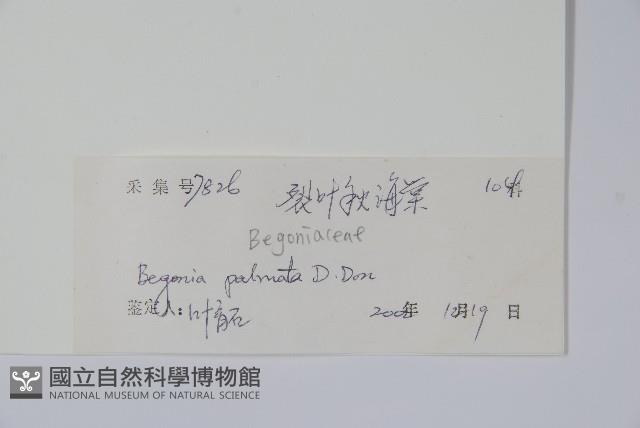 采集号 7826 裂叶秋海棠 104科
Begoniaceae
Begonia palmata D. Don
鉴定人: 叶育石 年 12月19日
國立自然科學博物館
NATIONAL MUSEUM OF NATURAL SCIENCE